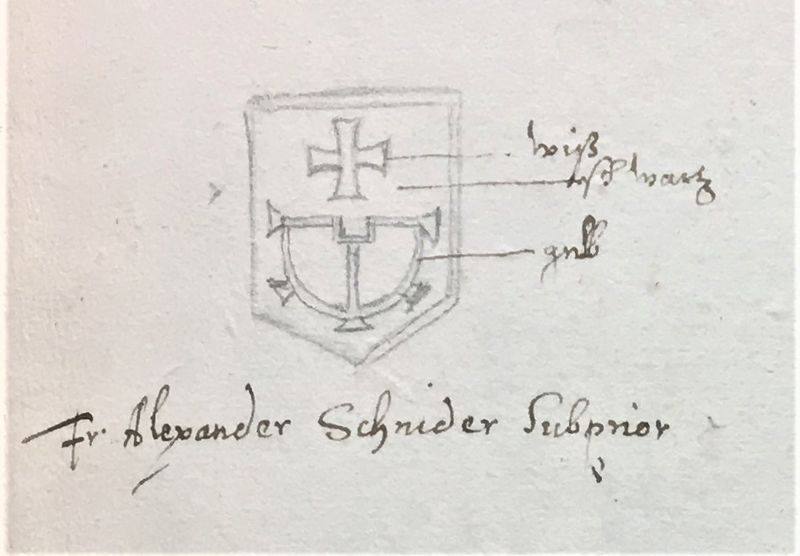 wiß
schwartz
gälb
Fr. Alexander Schnider Subprior